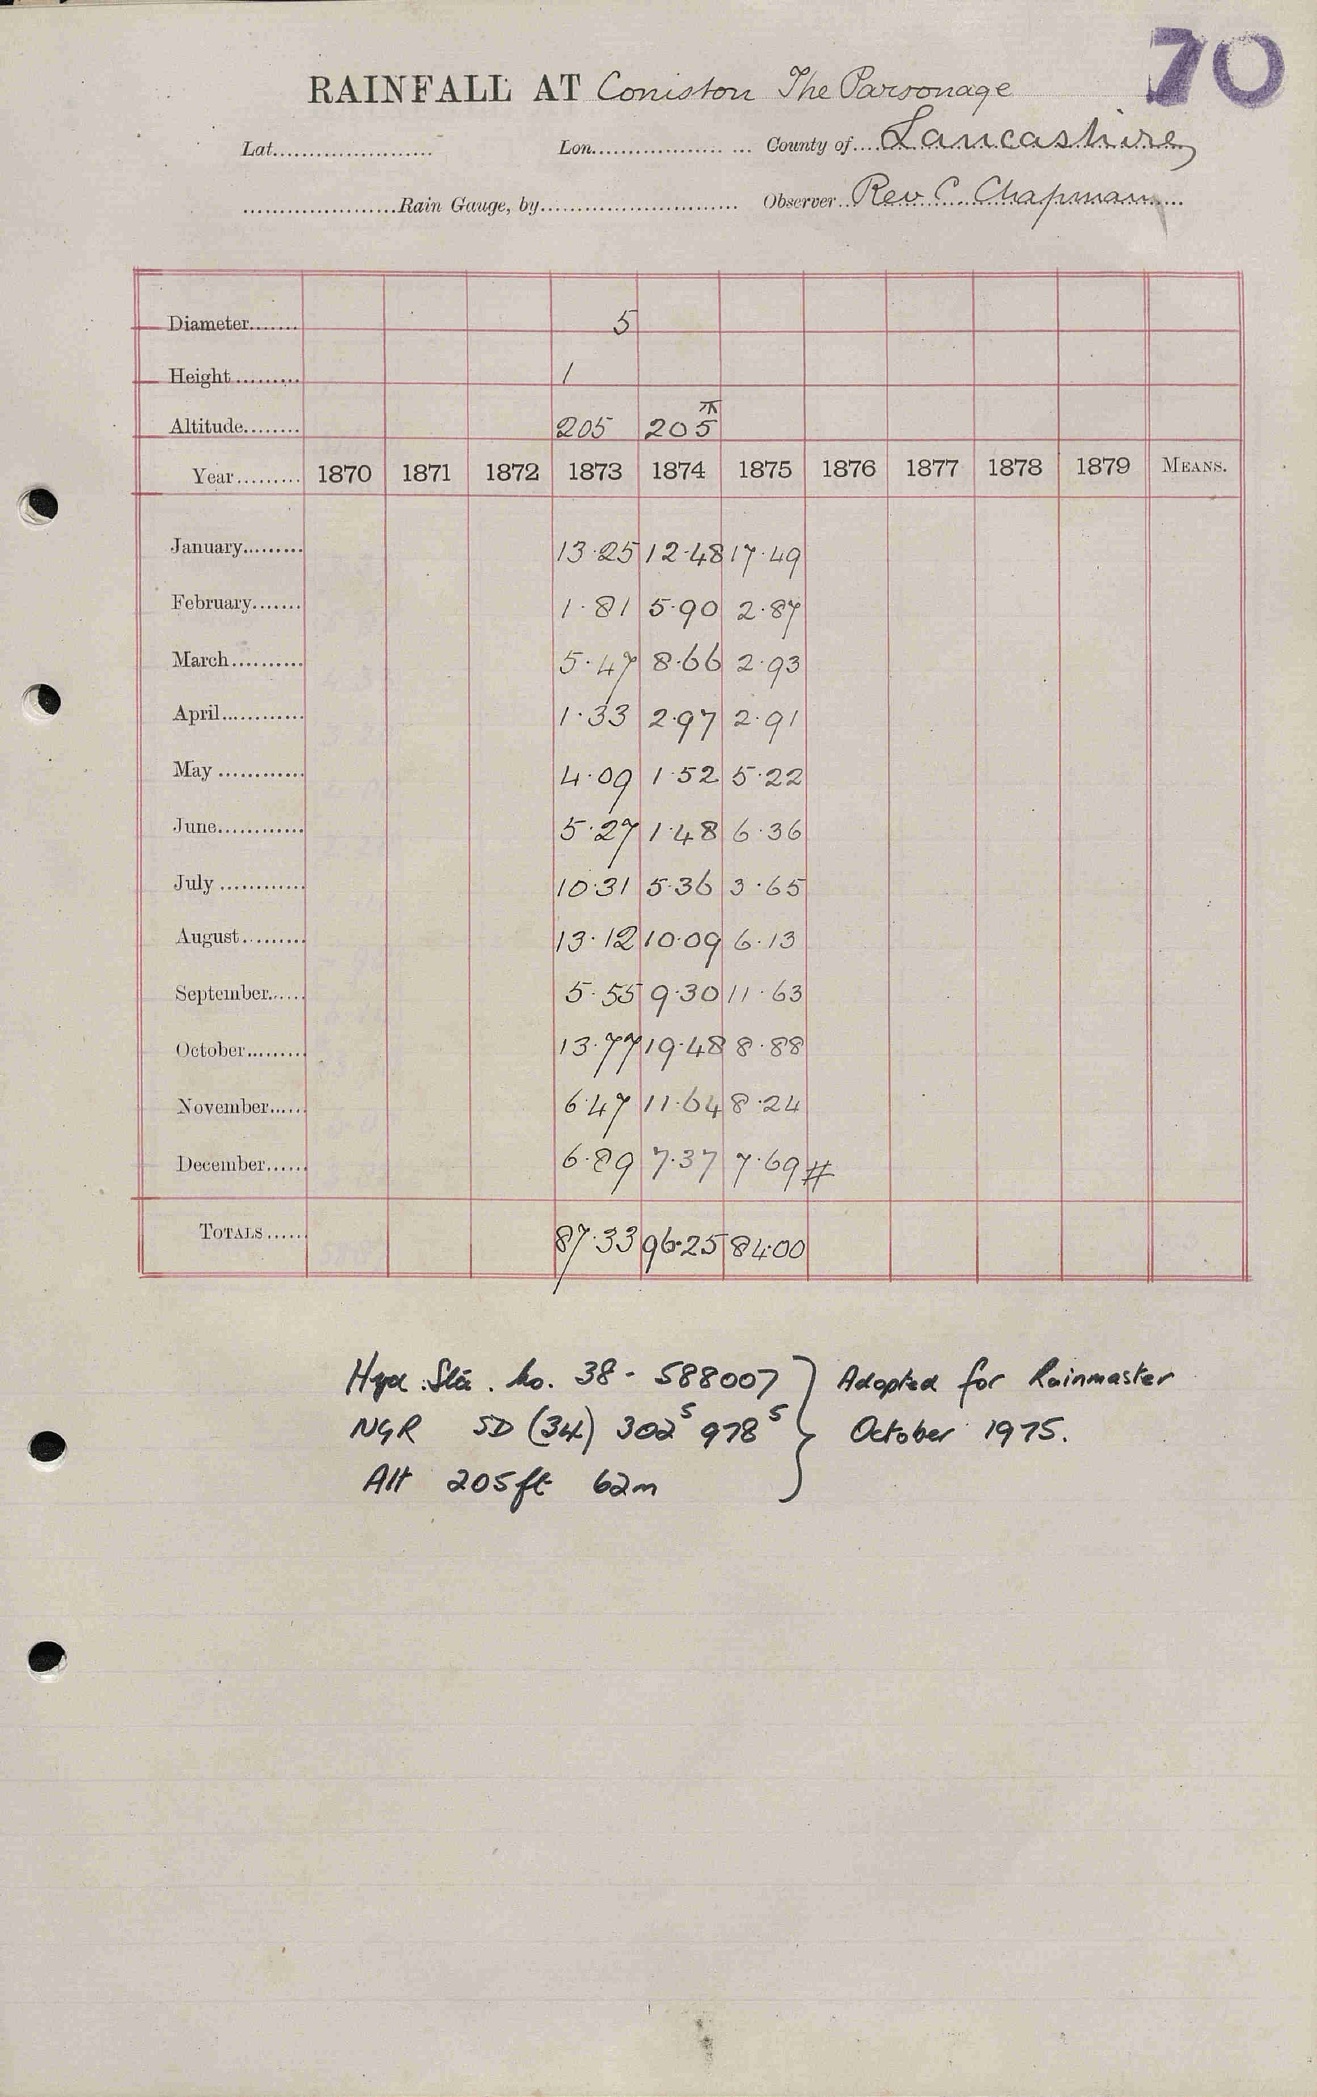 70
RAINFALL AT Coniston The Parsonage
Lat...................... Lon.................. ... County of....Lancashire
.....................Rain Gauge, by........................... Observer..Rev C. Chapman.....
Diameter....... 5
Height ......... 1
Altitude........ 205 205 T
Year......... 1870 1871 1872 1873 1874 1875 1876 1877 1878 1879 MEANS.
January......... 13.25 12.48 17.49
February....... 1.81 5.90 2.87
March.......... 5.47 8.66 2.93
April............ 1.33 2.97 2.91
May ............ 4.09 1.52 5.22
June............ 5.27 1.48 6.36
July ............ 10.31 5.36 3.65
August......... 13.12 10.09 6.13
September...... 5.55 9.30 11.63
October......... 13.77 19.48 8.88
November...... 6.47 11.64 8.24
December...... 6.89 7.37 7.69 #
TOTALS ...... 87.33 96.25 84.00
Hyd. Sta. No. 38 - 588007 } Adopted for Rainmaster
NGR SD (34) 302⁵ 978⁵ October 1975.
Alt 205ft 62m